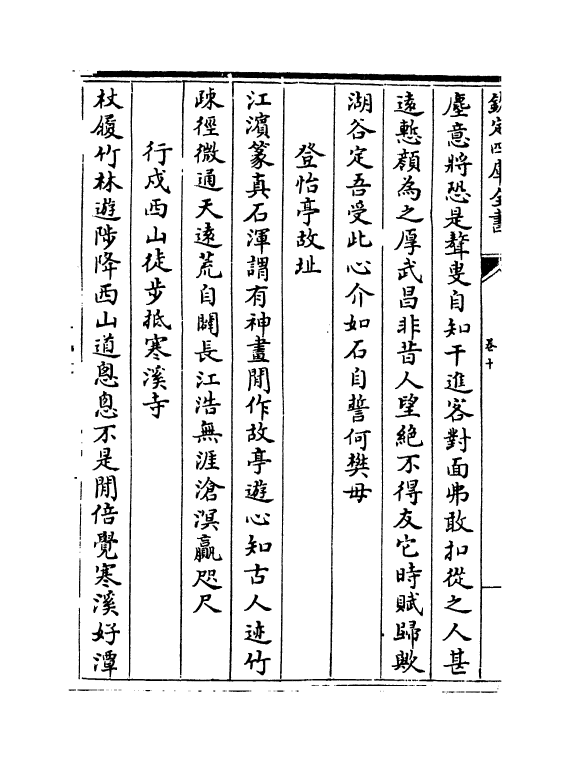 欽定四庫全書
卷十
塵意將恐是聱叟自知干進客對面弗敢扣從之人甚
遠慙顔為之厚武昌非昔人望絶不得友它時賦歸歟
湖谷定吾受此心介如石自誓何樊毋
登怡亭故址
江濵篆真石渾謂有神畫閒作故亭遊心知古人迹竹
疎徑微通天遠荒自闢長江浩無涯滄溟贏咫尺
行戍西山徒步抵寒溪寺
杖履竹林遊陟降西山道悤悤不是閒倍覺寒溪好潭